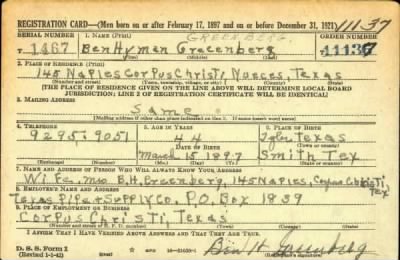 REGISTRATION CARD—(Men born on or after February 17, 1897 and on or before December 31, 1921)
11137
SERIAL NUMBER 1. NAME (Print) GREENBERG ORDER NUMBER
T 1467 Ben Hyman Greenberg 11137
(First) (Middle) (Last)
2. PLACE OF RESIDENCE (Print)
145 Naples Corpus Christi, Nueces, Texas
(Number and street) (Town, township, village, or city) (County) (State)
[THE PLACE OF RESIDENCE GIVEN ON THE LINE ABOVE WILL DETERMINE LOCAL BOARD
JURISDICTION; LINE 2 OF REGISTRATION CERTIFICATE WILL BE IDENTICAL]
3. MAILING ADDRESS
Same
[Mailing address if other than place indicated on line 2. If same insert word same]
4. TELEPHONE 5. AGE IN YEARS 6. PLACE OF BIRTH
9295-9051 44 Tyler Texas
DATE OF BIRTH (Town or county)
March 15 1897 Smith Tex
(Exchange) (Number) (Mo.) (Day) (Yr.) (State or country)
7. NAME AND ADDRESS OF PERSON WHO WILL ALWAYS KNOW YOUR ADDRESS
Wife, Mrs B.H. Greenberg, 145 Naples, Corpus Christi, Tex
8. EMPLOYER'S NAME AND ADDRESS
Texas Pipe & Supply Co. P.O. Box 1839
9. PLACE OF EMPLOYMENT OR BUSINESS
Corpus Christi, Texas
(Number and street or R. F. D. number) (Town) (County) (State)
I AFFIRM THAT I HAVE VERIFIED ABOVE ANSWERS AND THAT THEY ARE TRUE.
D. S. S. Form 1
(Revised 1-1-42)
Ben H Greenberg